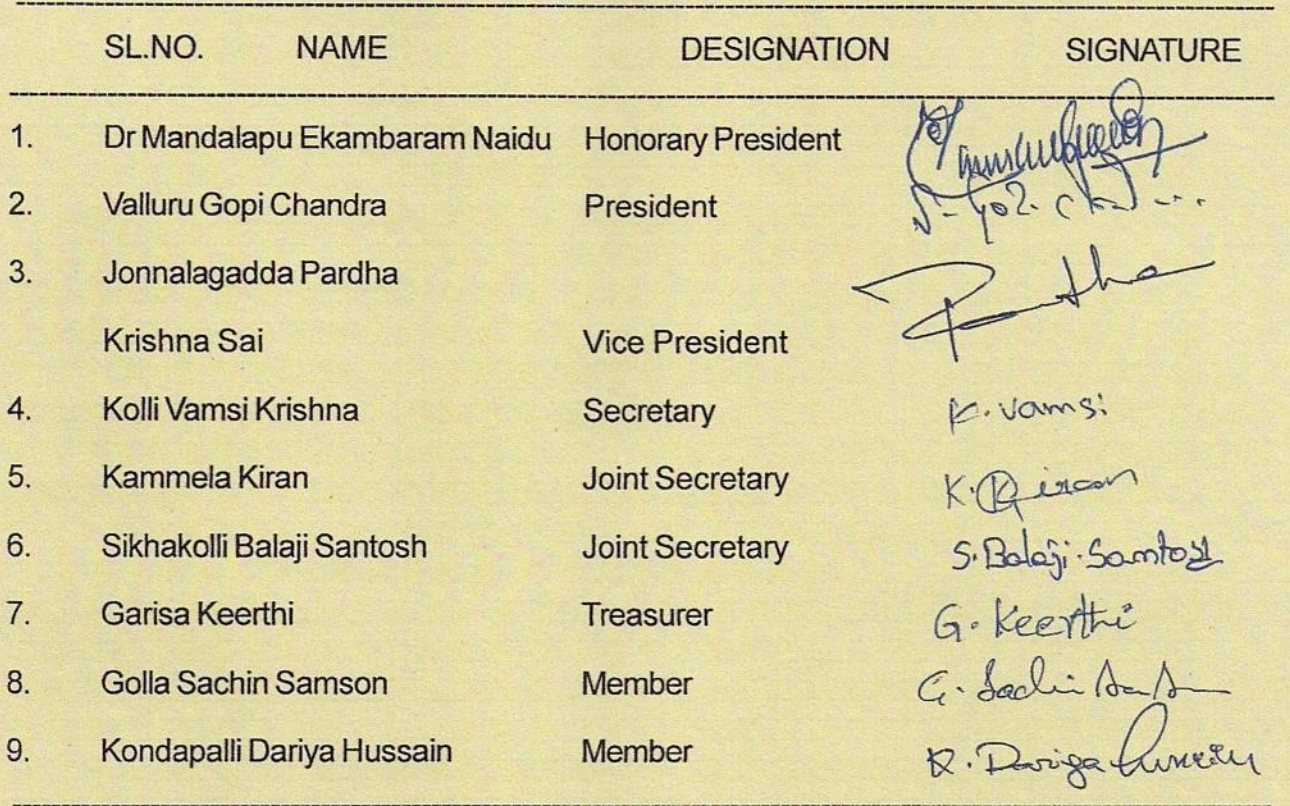 SL.NO. NAME DESIGNATION SIGNATURE
1. Dr Mandalapu Ekambaram Naidu Honorary President
2. Valluru Gopi Chandra President
3. Jonnalagadda Pardha Pardha
Krishna Sai Vice President
4. Kolli Vamsi Krishna Secretary K. Vamsi
5. Kammela Kiran Joint Secretary K. Kiran
6. Sikhakolli Balaji Santosh Joint Secretary S. Balaji. Santosh
7. Garisa Keerthi Treasurer G. Keerthi
8. Golla Sachin Samson Member G. Sachin
9. Kondapalli Dariya Hussain Member K. Dariya Hussain